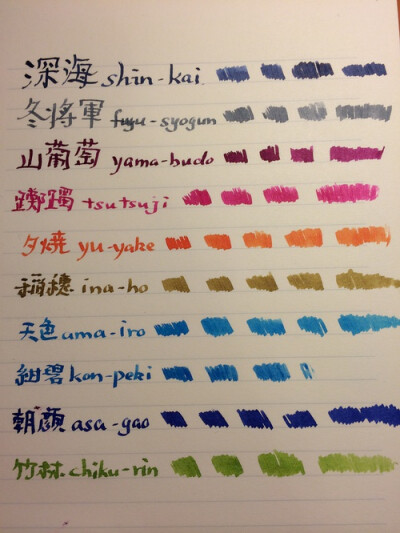 深海 shin-kai
冬將軍 fuyu-syogun
山葡萄 yama-budo
躑躅 tsutsuji
夕燒 yu-yake
稻穗 ina-ho
天色 ama-iro
紺碧 kon-peki
朝顔 asa-gao
竹林 chiku-rin